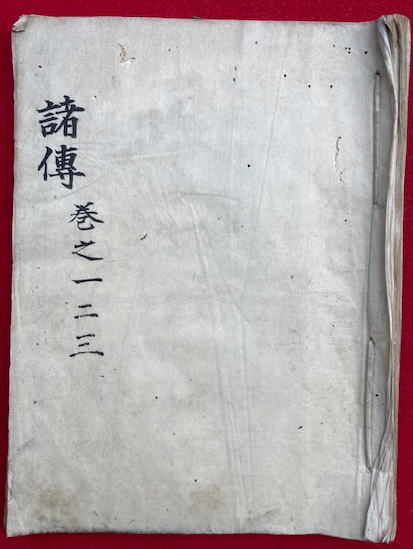 諸傳
巻之一二三